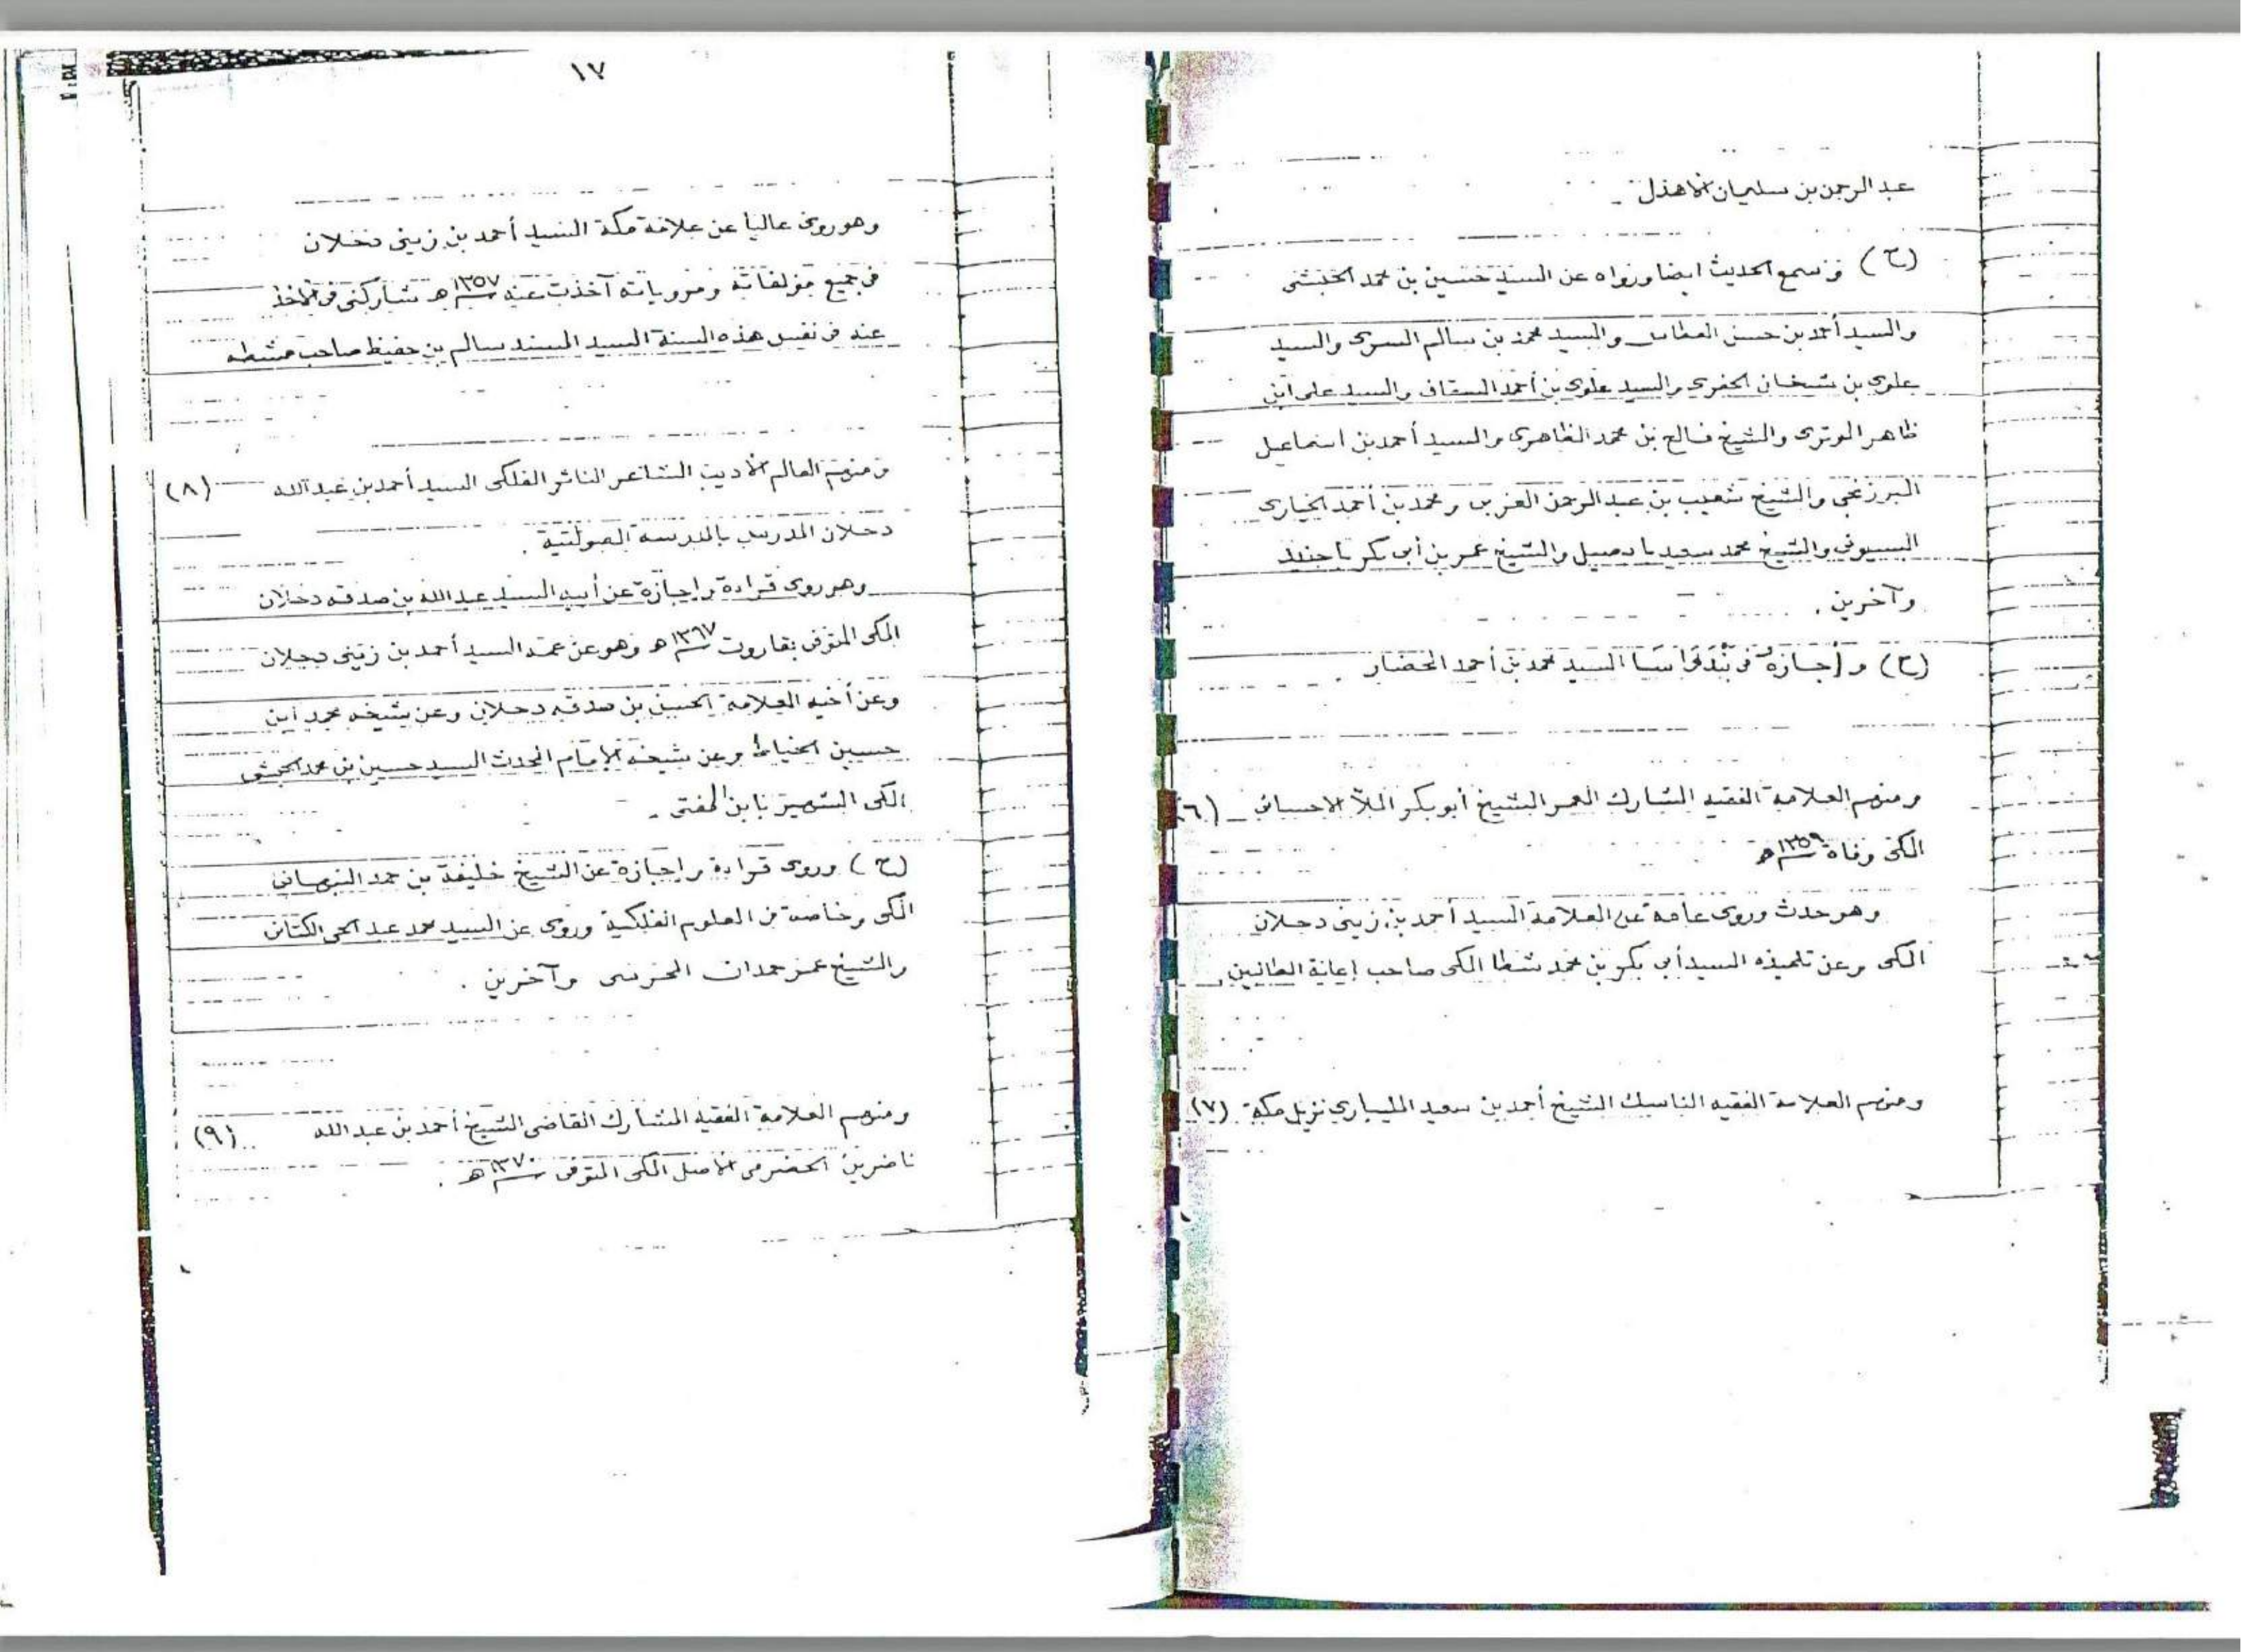 عبد الرحمن بن سليمان الأهدل .
(ح) وسمع الحديث ايضا ورواه عن السيد حسين بن محمد الحبشي
والسيد أحمد بن حسن العطاس والسيد محمد بن سالم السري والسيد
علوي بن شيخان الجفري والسيد علوي بن أحمد السقاف والسيد علي ابن
ظاهر الوتري والشيخ فالح بن محمد الظاهري والسيد أحمد بن اسماعيل
البرزنجي والشيخ شعيب بن عبد الرحمن المغربي ومحمد بن أحمد الخياري
البسيوني والشيخ محمد سعيد بابصيل والشيخ عمر بن أبي بكر باجنيد
وآخرين .
(ح) وأجازه في السيد محمد بن أحمد الحضار
ومنهم العلامة الفقيه المشارك المعمر الشيخ أبو بكر الملا الاحسائي (٦)
المكي وفاة ١٣٥٩هـ
وهو حدث وروى عامة عن العلامة السيد أحمد بن زيني دحلان
المكي وعن تلميذه السيد أبي بكر بن محمد شطا المكي صاحب إعانة الطالبين
ومنهم العلامة الفقيه الناسك الشيخ أحمد بن سعيد المليباري نزيل مكة (٧)
١٧
وهو روى عاليا عن علامة مكة السيد أحمد بن زيني دحلان
في جميع مؤلفاته ومروياته آخذت عنه ١٣٥٧هـ شاركني في الأخذ
عنه في نفس هذه السنة السيد المسند سالم بن حفيظ صاحب مشطه
ومنهم العالم الأديب الشاعر الناثر الفلكي السيد أحمد بن عبد الله (٨)
دحلان المدرس بالمدرسة الصولتية .
وهو روى قراءة وإجازة عن أبيه السيد عبد الله بن صدقه دحلان
المكي المتوفى بقاروت ١٣٦٧هـ وهو عن عمه السيد أحمد بن زيني دحلان
وعن أخيه العلامة الحسين بن صدقه دحلان وعن شيخه محمد ابن
حسين الخياط وعن شيخه الإمام المحدث السيد حسين بن محمد الحبشي
المكي الشهير بابن المفتي .
(ح) وروى قراءة وإجازة عن الشيخ خليفة بن حمد النبهاني
المكي وخاصة في العلوم الفلكية وروى عن السيد محمد عبد الحي الكتاني
والشيخ عمر حمدان المحرسي وآخرين .
ومنهم العلامة الفقيه المشارك القاضي الشيخ أحمد بن عبد الله (٩)
ناضرين الحضرمي الأصل المكي المتوفى ١٣٧٠هـ .